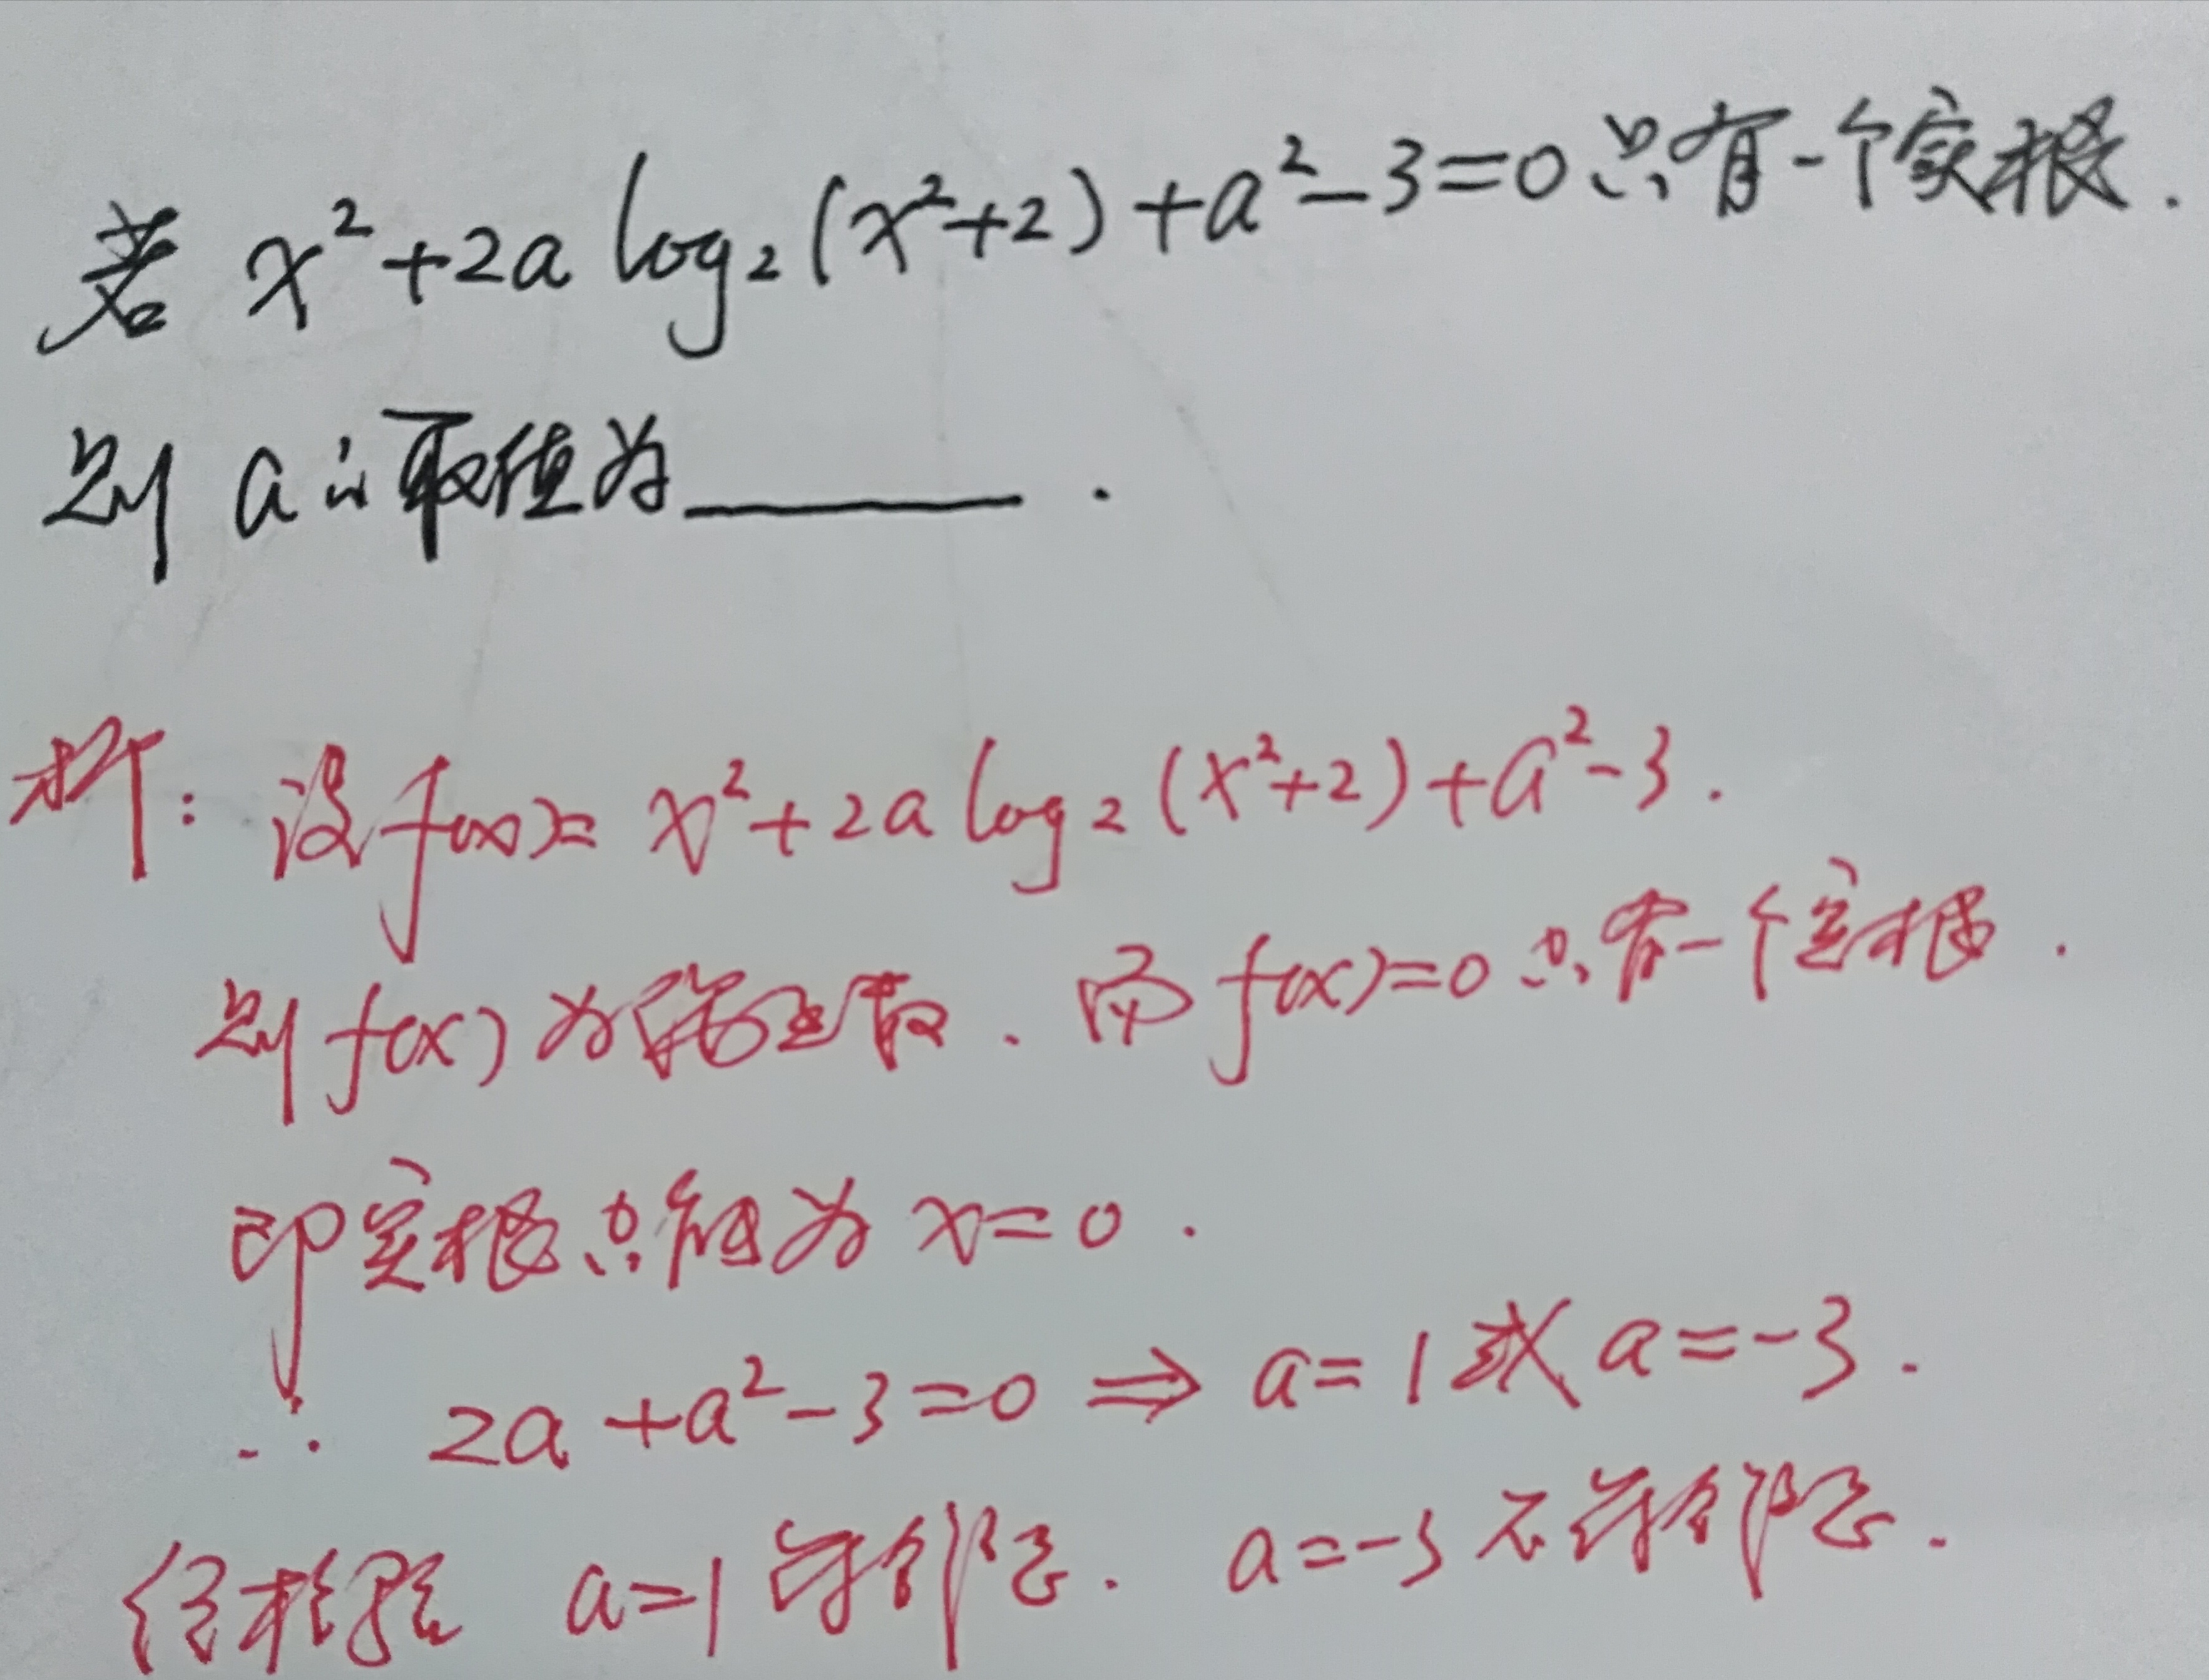 若 x²+2a log₂(x²+2)+a²-3=0只有一个实根.
则 a的取值为______.
析: 设f(x)= x²+2a log₂(x²+2)+a²-3.
则f(x)为偶函数. 而f(x)=0只有一个实根.
即实根只能为 x=0.
∴ 2a+a²-3=0 ⇒ a=1或a=-3.
经检验 a=1符合题意. a=-3不符合题意.